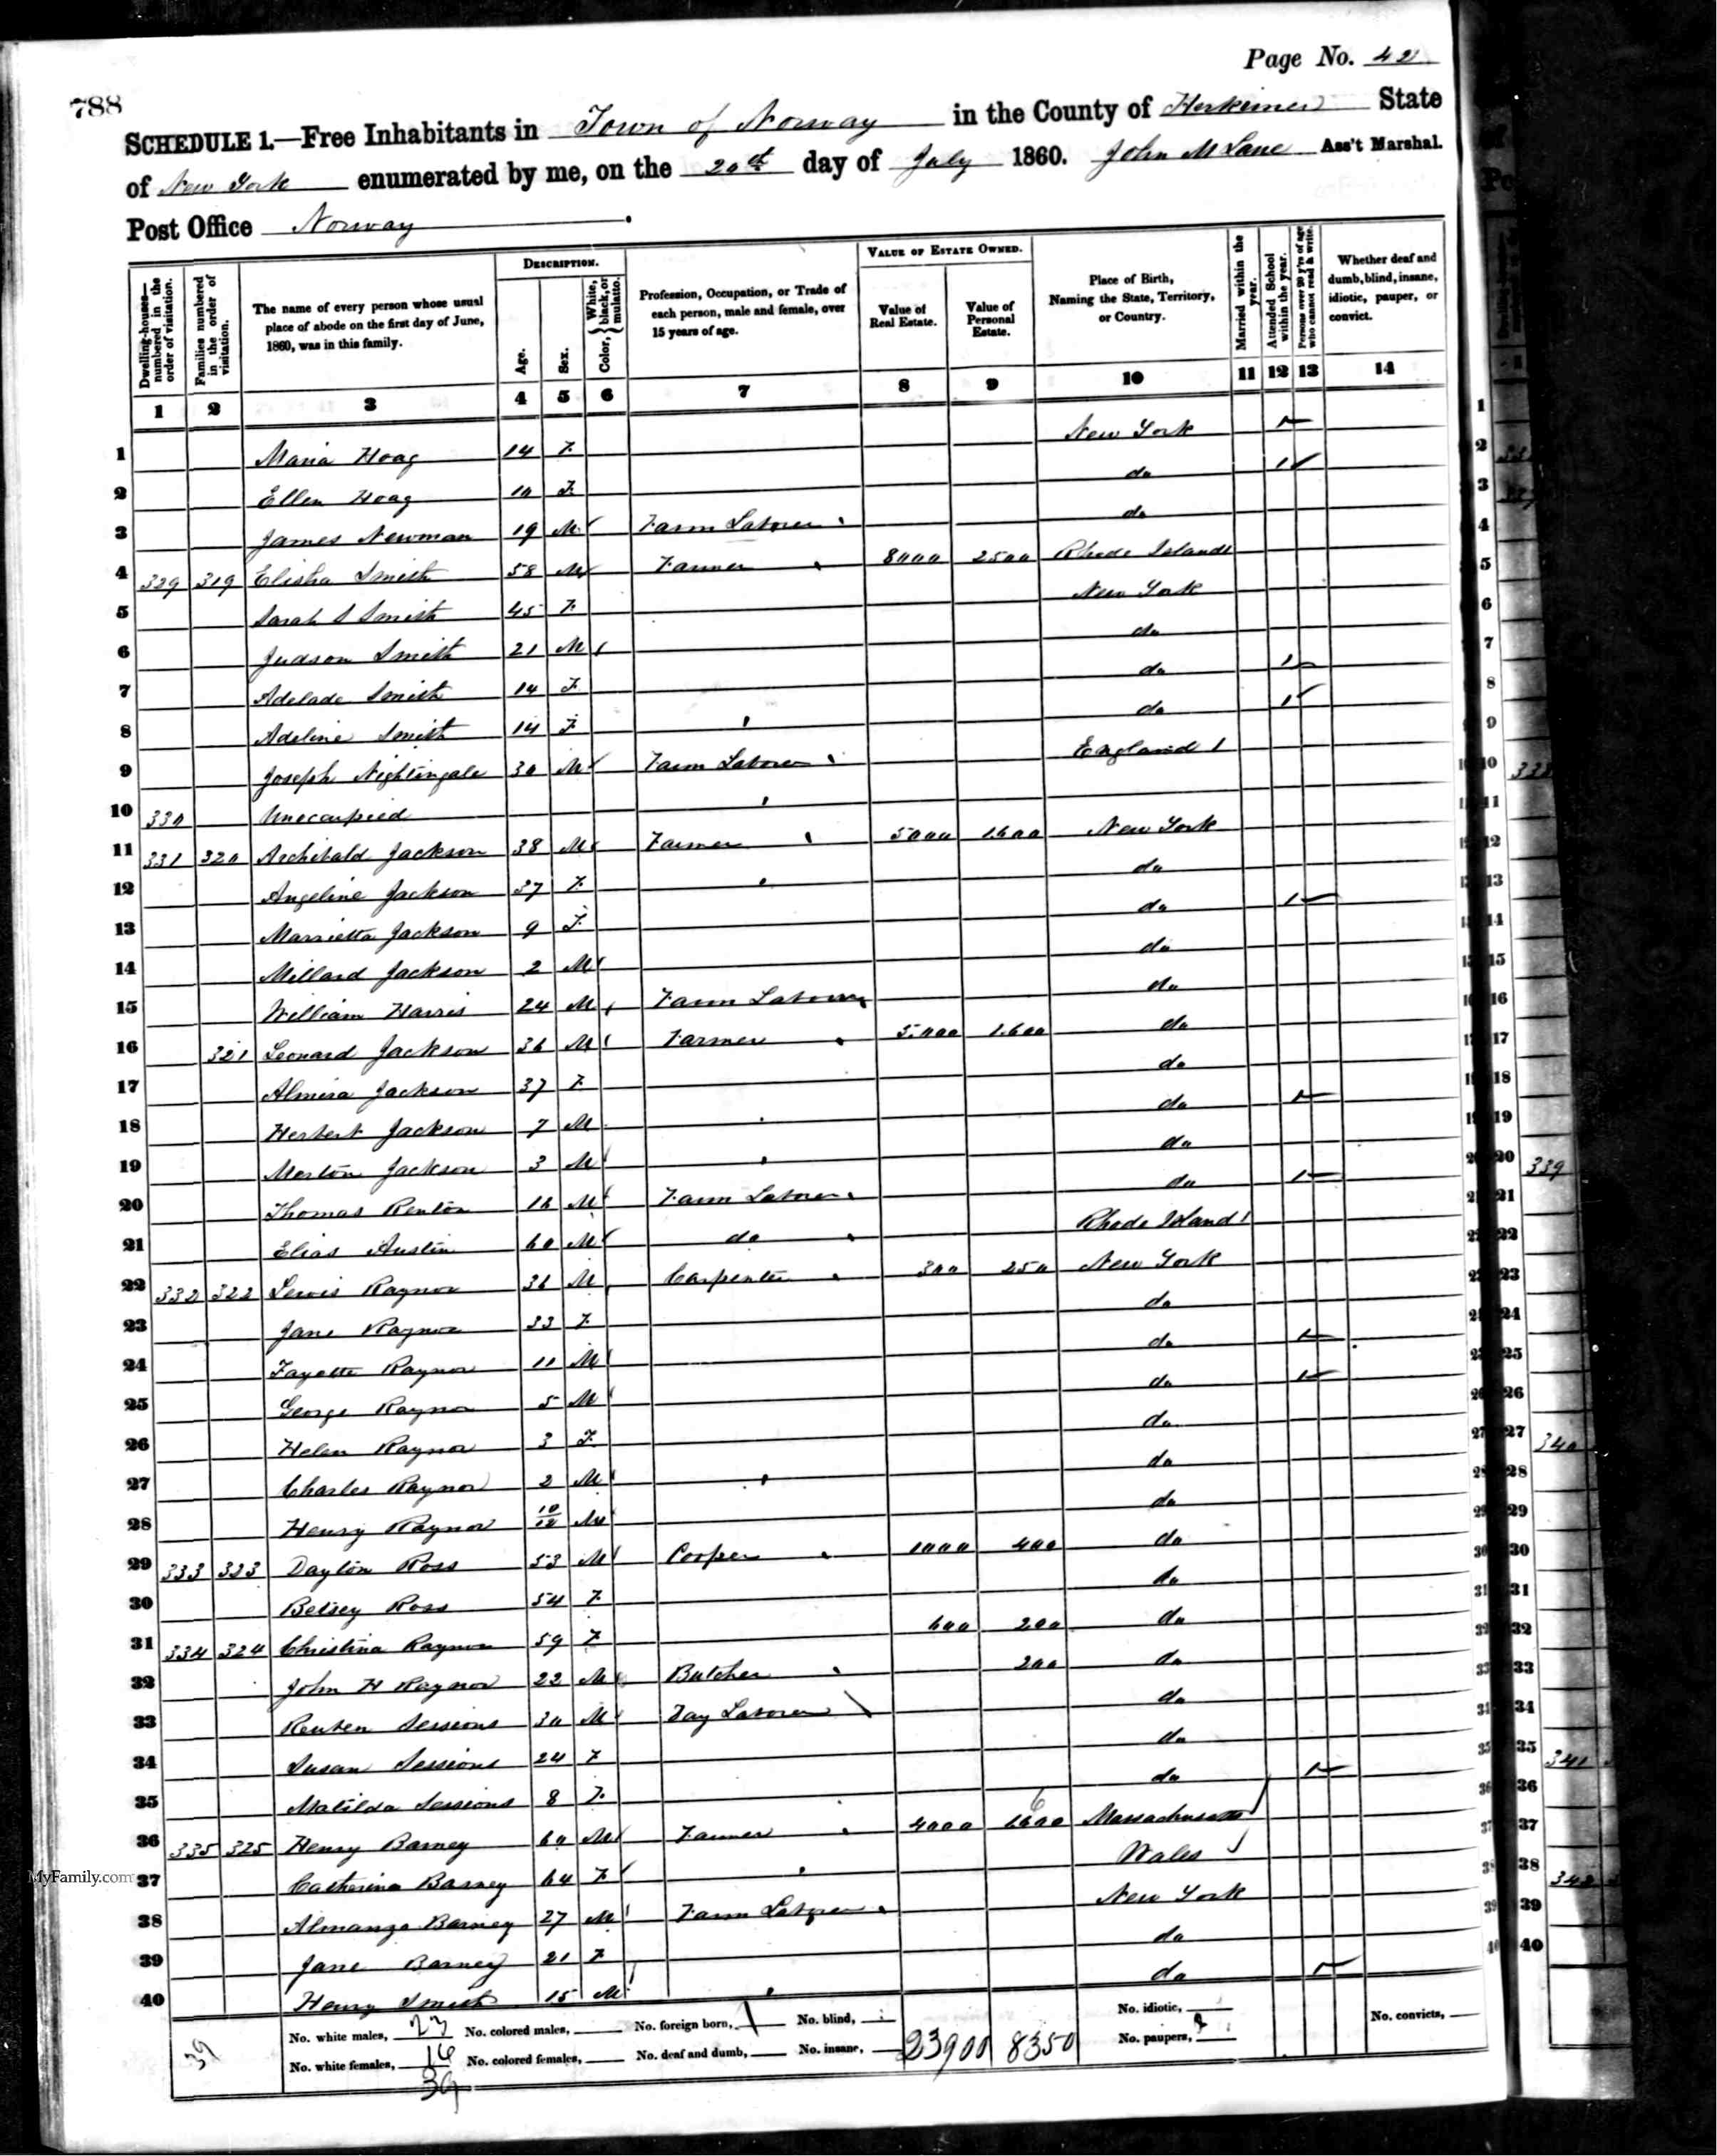 Page No. 42
788
SCHEDULE 1.—Free Inhabitants in Town of Norway in the County of Herkimer State
of New York enumerated by me, on the 20th day of July 1860. John M Lane Ass't Marshal.
Post Office Norway.
Dwelling-houses—numbered in the order of visitation. Families numbered in the order of visitation. The name of every person whose usual place of abode on the first day of June, 1860, was in this family. DESCRIPTION. Age. Sex. Color, {White, black, or mulatto. Profession, Occupation, or Trade of each person, male and female, over 15 years of age. VALUE OF ESTATE OWNED. Value of Real Estate. Value of Personal Estate. Place of Birth, Naming the State, Territory, or Country. Married within the year. Attended School within the year. Persons over 20 y'rs of age who cannot read & write. Whether deaf and dumb, blind, insane, idiotic, pauper, or convict.
1 2 3 4 5 6 7 8 9 10 11 12 13 14
1 Maria Hoag 14 F New York 1
2 Ellen Hoag 10 F do 1
3 James Newman 19 M Farm Laborer do
4 329 319 Elisha Smith 58 M Farmer 8000 2500 Rhode Island
5 Sarah S Smith 45 F New York
6 Judson Smith 21 M do
7 Adelade Smith 14 F do 1
8 Adeline Smith 14 F do 1
9 Joseph Nightingale 30 M Farm Laborer England 1
10 330 Unoccupied
11 331 320 Archibald Jackson 38 M Farmer 5000 1600 New York
12 Angeline Jackson 37 F do
13 Marrietta Jackson 9 F do 1
14 Millard Jackson 2 M do
15 William Harris 24 M Farm Laborer do
16 321 Leonard Jackson 36 M Farmer 5.000 1.600 do
17 Almira Jackson 37 F do
18 Herbert Jackson 7 M do 1
19 Merton Jackson 3 M do
20 Thomas Renton 16 M Farm Laborer do 1
21 Elias Austin 60 M do Rhode Island 1
22 332 322 Lewis Raynor 36 M Carpenter 300 250 New York
23 Jane Raynor 33 F do
24 Fayette Raynor 11 M do 1
25 George Raynor 5 M do 1
26 Helen Raynor 3 F do
27 Charles Raynor 2 M do
28 Henry Raynor 10/12 M do
29 333 323 Dayton Ross 53 M Cooper 1000 400 do
30 Betsey Ross 54 F do
31 334 324 Christina Raynor 59 F 600 200 do
32 John H Raynor 22 M Butcher 200 do
33 Reuben Sessions 30 M Day Laborer do
34 Susan Sessions 24 F do
35 Matilda Sessions 8 F do 1
36 335 325 Henry Barney 60 M Farmer 4000 1600 Massachusetts
37 Catherine Barney 64 F Wales
38 Almanza Barney 27 M Farm Laborer New York
39 Jane Barney 21 F do
40 Henry Smith 15 M do 1
No. white males, 23 No. colored males, No. foreign born, No. blind, No. idiotic, No. convicts,
No. white females, 16 No. colored females, No. deaf and dumb, No. insane, 23900 8350 No. paupers,
39
39
MyFamily.com
338
339
340
341
342